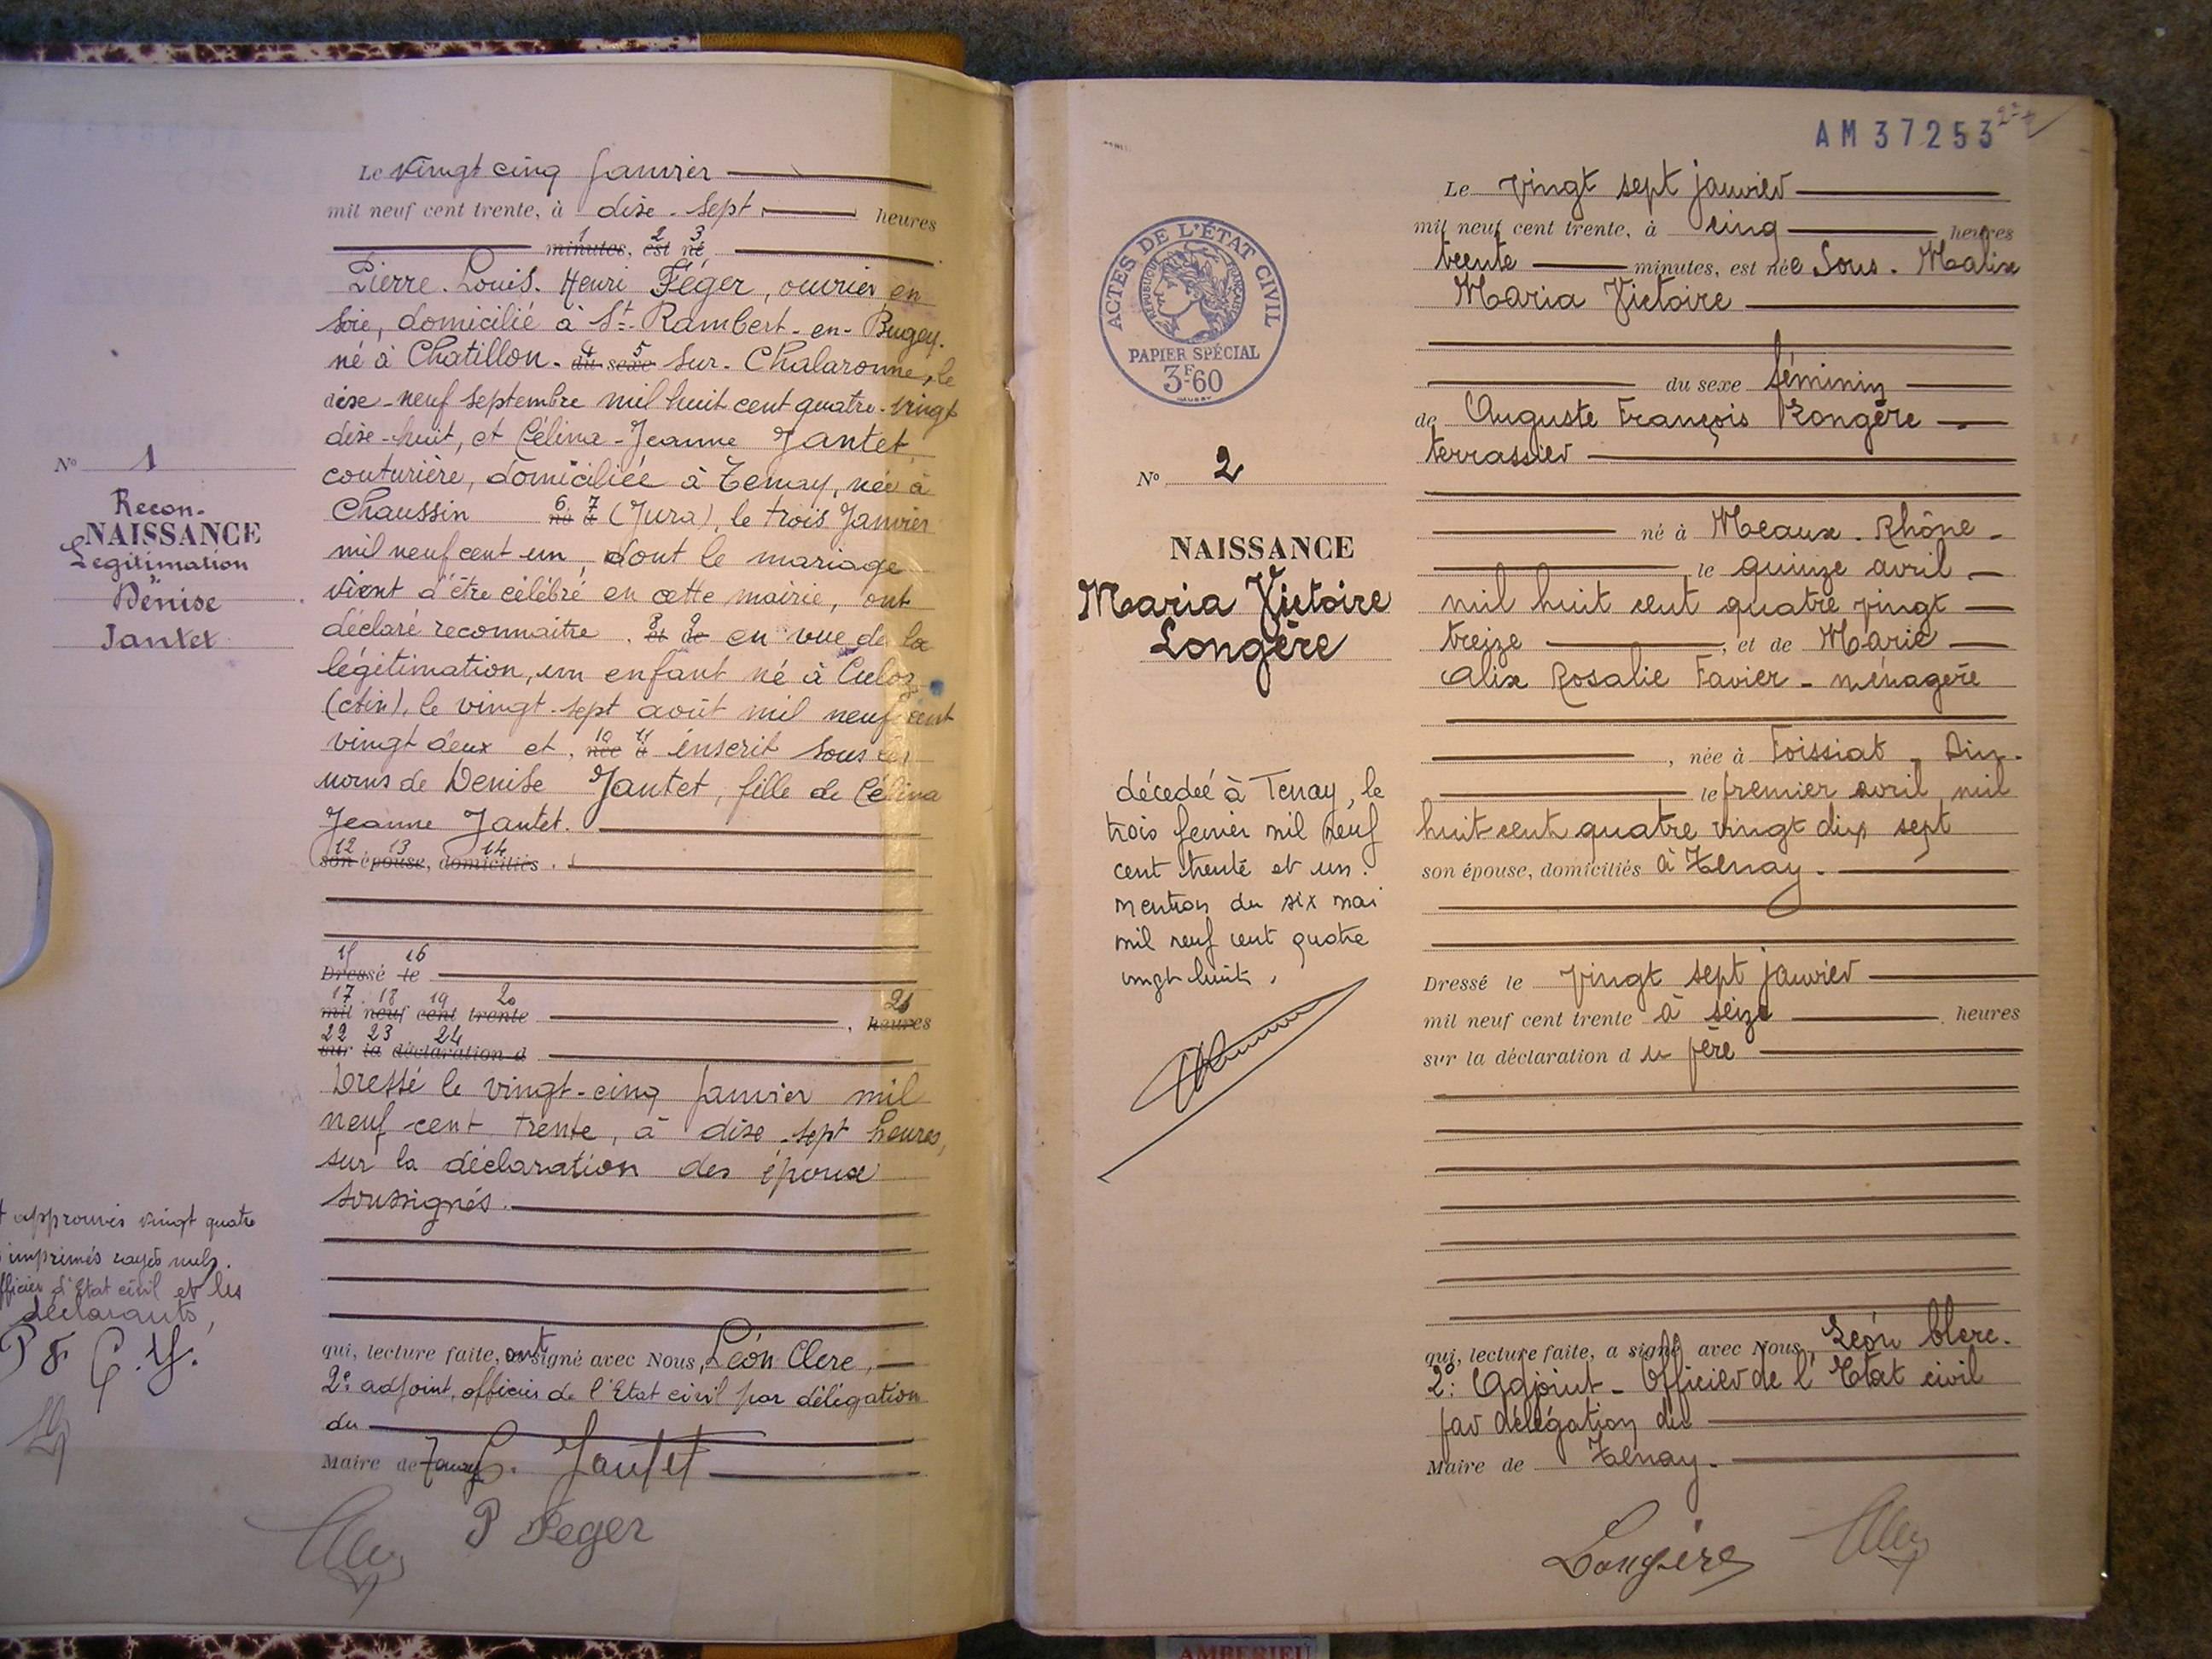 Le vingt cinq Janvier
mil neuf cent trente, à dix-sept heures
1 2 3
minutes, est né
Pierre-Louis-Henri Féger, ouvrier en
soie, domicilié à St-Rambert-en-Bugey.
né à Chatillon- 4 5 du sexe sur-Chalaronne, le
dix-neuf septembre mil huit cent quatre-vingt
dix-huit, et Célina-Jeanne Jantet,
couturière, domiciliée à Tenay, née à
Chaussin 6 7 né à (Jura), le trois Janvier
mil neuf cent un, dont le mariage
vient d'être célébré en cette mairie, ont
déclaré reconnaitre, 8 9 et de en vue de la
légitimation, un enfant né à Culoz
(Ain), le vingt-sept août mil neuf cent
vingt deux et, 10 11 née à inscrit sous les
noms de Denise Jantet, fille de Célina
Jeanne Jantet.
12 13 14
son épouse, domiciliés.
15 16
Dressé le
17 18 19 20 21
mil neuf cent trente, heures
22 23 24
sur la déclaration d
Dressé le vingt-cinq Janvier mil
neuf cent trente, à dix-sept heures,
sur la déclaration des époux
soussignés.
qui, lecture faite, ont signé avec Nous, Léon Clerc,
2e adjoint, officier de l'Etat civil par délégation
du
Maire de Tenay C. Jantet
P Feger
No 1
Recon-
NAISSANCE
Légitimation
Denise
Jantet
approuvés vingt quatre
imprimés rayés nuls.
officier d'Etat civil et les
déclarants,
P F C. J.
AM37253
ACTES DE L'ÉTAT CIVIL
RÉPUBLIQUE FRANÇAISE
PAPIER SPÉCIAL
3F60
No 2
NAISSANCE
Maria Victoire
Longère
décedeé à Tenay, le
trois fevrier mil neuf
cent trente et un.
mention du six mai
mil neuf cent quatre
vingt huit.
Le vingt sept janvier
mil neuf cent trente, à cinq heures
trente minutes, est née Sous-Malix
Maria Victoire
du sexe féminin
de Auguste François Longère
terrassier
né à Meaux-Rhône-
le quinze avril
mil huit cent quatre vingt
treize, et de Marie
Alix Rosalie Favier-ménagère
, née à Foissiat-Ain-
le premier avril mil
huit cent quatre vingt dix sept
son épouse, domiciliés à Tenay.
Dressé le vingt sept janvier
mil neuf cent trente à seize heures
sur la déclaration du père
qui, lecture faite, a signé avec Nous, Léon Clerc.
2e Adjoint-Officier de l'Etat civil
par délégation du
Maire de Tenay.
Longère
AMBERIEU